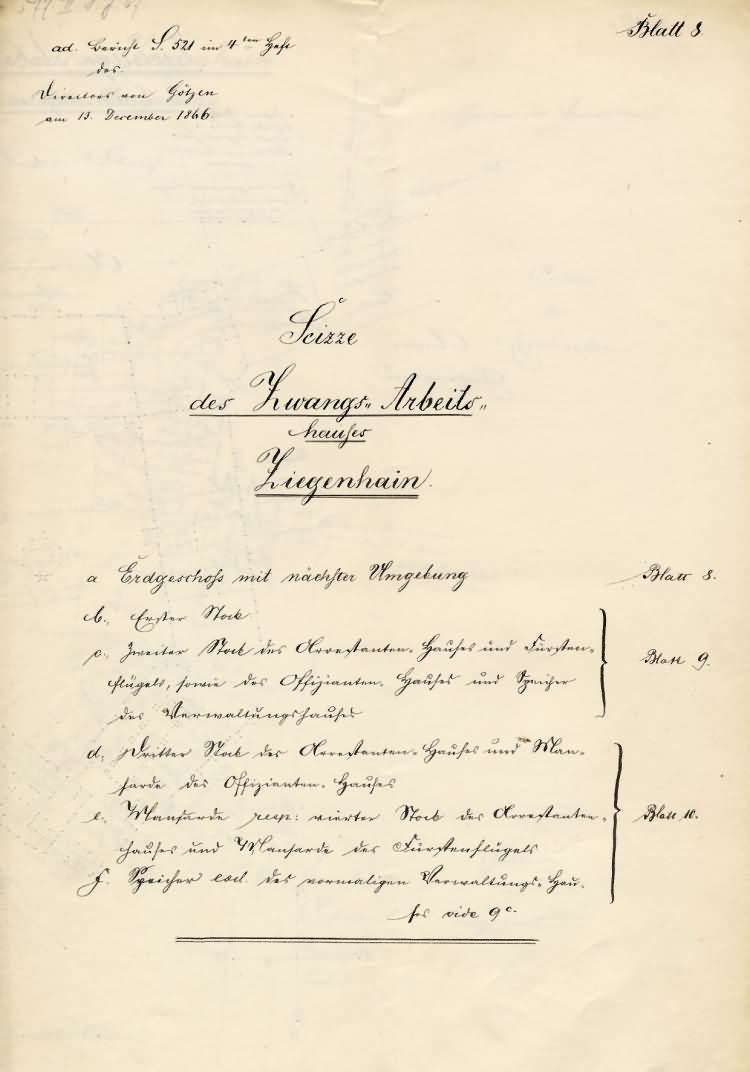 Blatt 8.
ad. Bericht S. 521 im 4ten Heft
des
Directors von Götzen
am 13. December 1866.
Scizze
des Zwangs„ Arbeits„
hauses
Ziegenhain.
a Erdgeschoss mit nächster Umgebung Blatt 8.
b., Erster Stock
c., Zweiter Stock des Arrestanten-Hauses und Fürsten-
flügels, sowie des Offizianten-Hauses und Speicher Blatt 9.
des Verwaltungshauses
d., Dritter Stock des Arrestanten-Hauses und Man-
sarde des Offizianten-Hauses
e., Mansarde resp: vierter Stock des Arrestanten- Blatt 10.
hauses und Mansarde des Fürstenflügels
f. Speicher excl. des vormaligen Verwaltungs-Hau-
ses vide 9c.